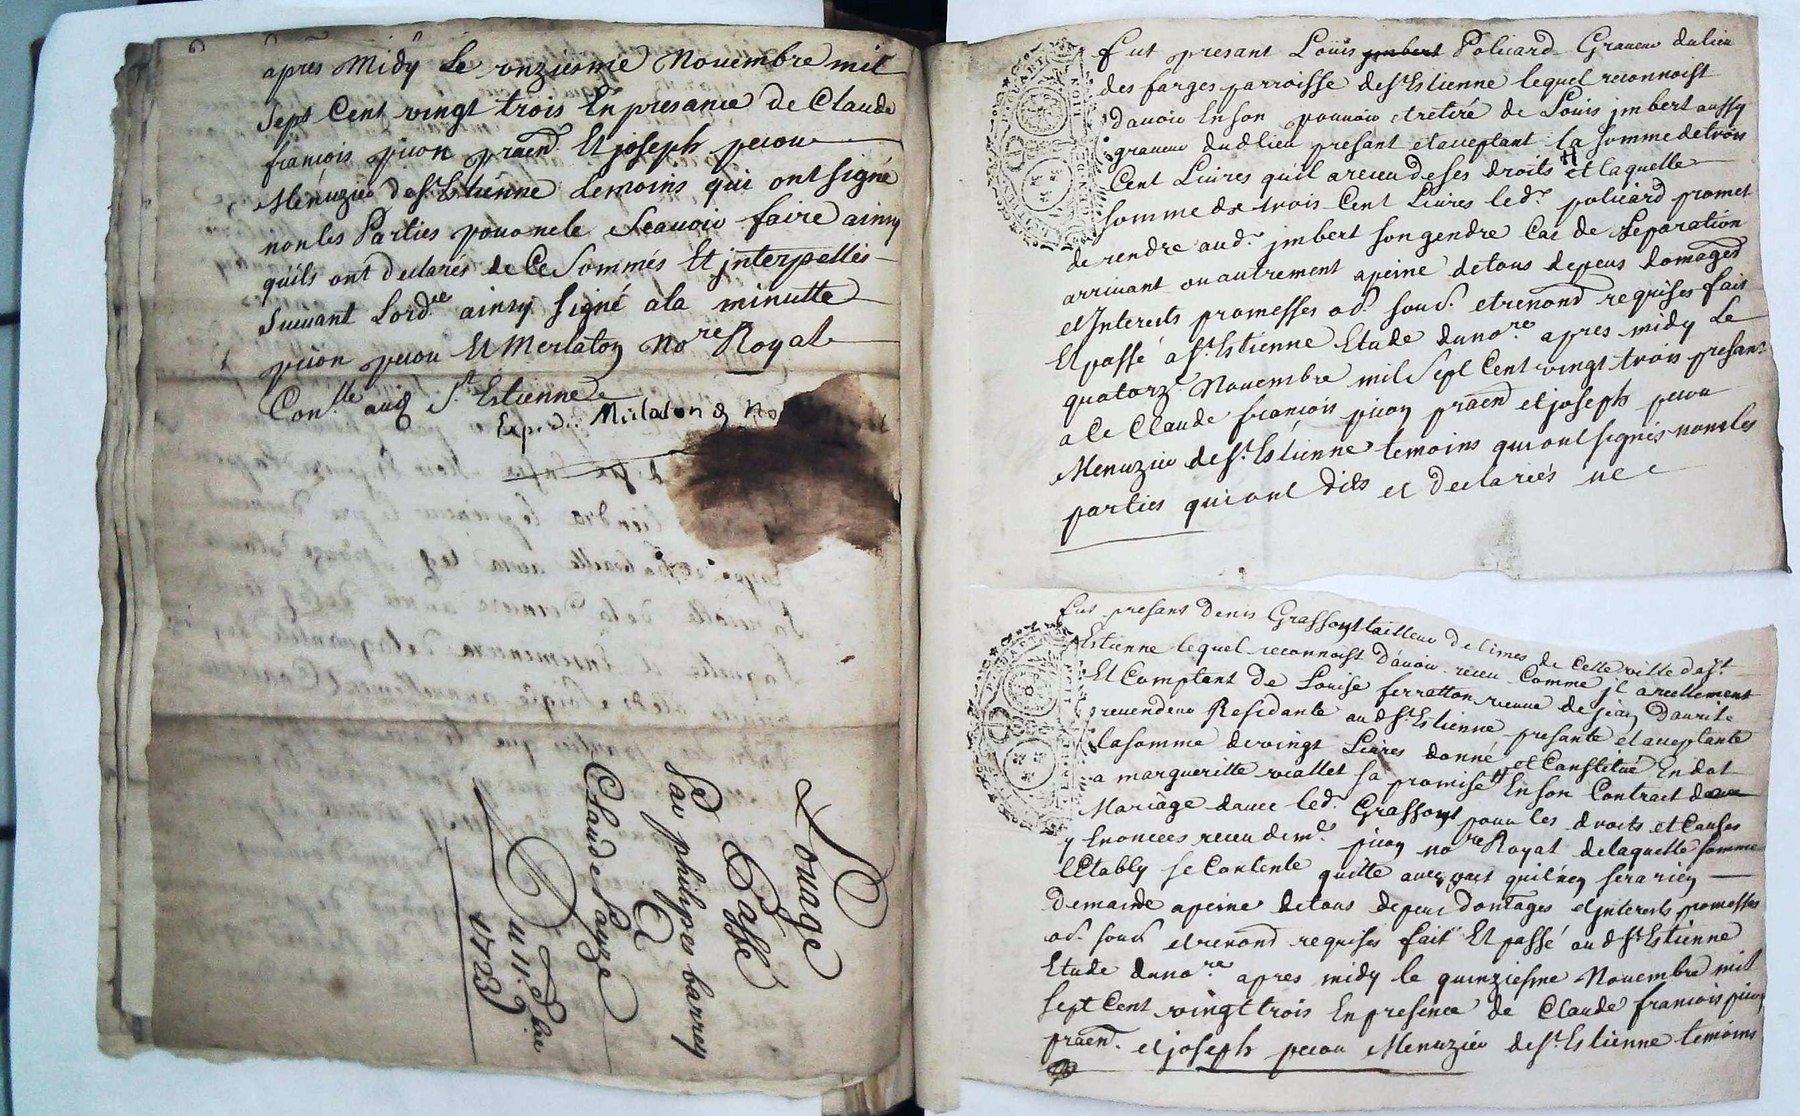 apres Midy le onziesme Novembre mil
sept Cent vingt trois En presance de Claude
francois picon praen.d Et joseph pecou
Menuzier de St Estienne temoins qui ont signé
non les Parties pour ne le Scavoir faire ainsy
quils ont declarés de Ce Sommés Et jnterpellés
Suivant Lord.ce ainsy Signé a la minutte
picon pecou Et Merlaton No.re Royal
Con.lle aud St Estienne
Exped. Merlaton No
Louage
Passé
Par philipes barrey
A
Claude Payze
Du 11.e 9.bre
1723
fut presant Louis jmbert Policard Graveur du lieu
des farges parroisse de St Estienne lequel reconnoist
davoir En son pouvoir et retiré de Louis jmbert aussy
graveur dud lieu presant et acceptant la somme de trois
Cent Livres quil a receu de ses droits et laquelle
somme de trois Cent Livres led. policard promet
de rendre aud. jmbert son gendre Cas de Separation
arrivant ou autrement a peine de tous depens domages
et Jnterests promesses ob. soub. et renond requises fait
Et passé a St Estienne Etude du no.re apres midy Le
quatorz.e Novembre mil Sept Cent vingt trois presans
a Ce Claude francois picon praen.d et joseph pecou
Menuzier de St Estienne temoins qui ont signés non les
parties qui ont dits et declariés ne
fut presant Denis Grassont tailleur de limes de Cette ville de St
Estienne lequel reconnoist Davoir receu Comme jl a reellement
Et Comptant de Louise ferratton veuve de jean Daurit
revendeur Residante aud St Estienne presante et acceptante
la somme de vingt Livres donné et Constitué En dot
a margueritte viallet sa promise En son Contract
Mariage davec led. Grassont pour les droits et Causes
y Enoncees receu de m.e picon no.re Royal de laquelle somme
lEtably se Contente quitte avec pact quil ney sera rien
demande a peine de tous depens domages et jnterests promesses
ob. soub. et renond requises fait Et passé aud St Estienne
Etude du no.re apres midy le quinziesme Novembre mil
sept Cent vingt trois En presence de Claude francois picon
praen.d et joseph pecou Menuzier de St Estienne temoins